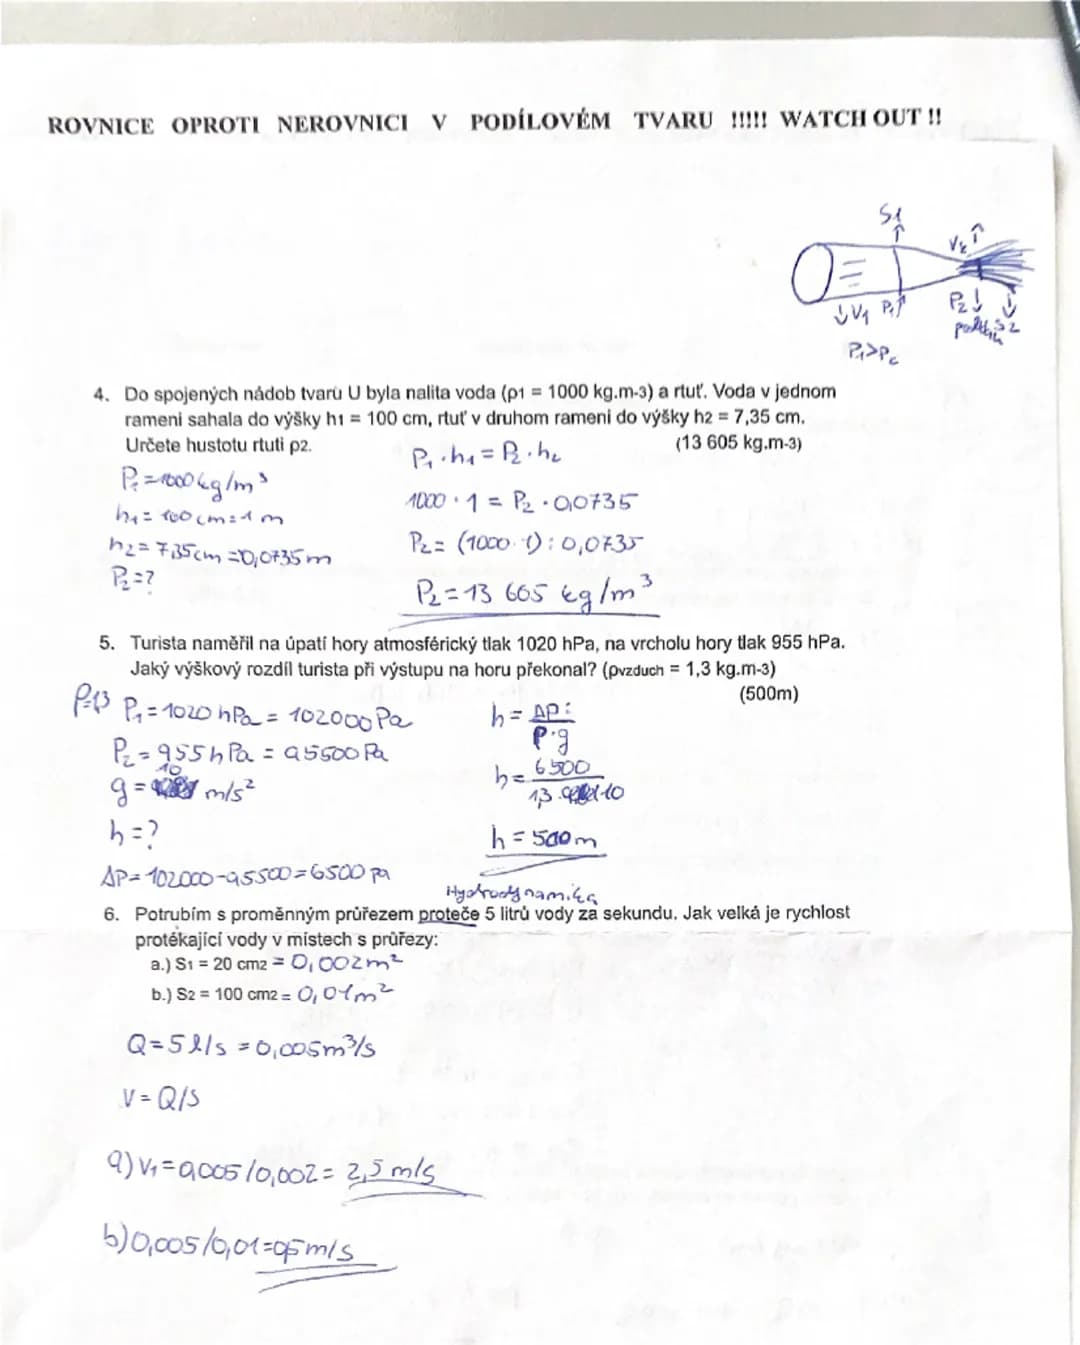 ROVNICE OPROTI NEROVNICI V PODÍLOVÉM TVARU !!!!! WATCH OUT !!
S1
V2 ↑
↓V1 P1↑
P2↓
S2
P1>P2
4. Do spojených nádob tvaru U byla nalita voda (ρ1 = 1000 kg.m-3) a rtuť. Voda v jednom
rameni sahala do výšky h1 = 100 cm, rtuť v druhom rameni do výšky h2 = 7,35 cm.
Určete hustotu rtuti ρ2. (13 605 kg.m-3)
P1 = 1000 kg/m³
h1 = 100cm = 1 m
h2 = 7,35cm = 0,0735m
P2 = ?
P1 · h1 = P2 · h2
1000 · 1 = P2 · 0,0735
P2 = (1000 · 1) : 0,0735
P2 = 13 605 kg/m³
5. Turista naměřil na úpatí hory atmosférický tlak 1020 hPa, na vrcholu hory tlak 955 hPa.
Jaký výškový rozdíl turista při výstupu na horu překonal? (ρvzduch = 1,3 kg.m-3)
(500m)
P1 = 1020 hPa = 102000 Pa
P2 = 955 hPa = 95500 Pa
g = 10 m/s²
h = ?
ΔP = 102000 - 95500 = 6500 Pa
h = ΔP : ρ·g
h = 6500 / 1,3 · 10
h = 500m
Hydrodynamika
6. Potrubím s proměnným průřezem proteče 5 litrů vody za sekundu. Jak velká je rychlost
protékající vody v místech s průřezy:
a.) S1 = 20 cm2 = 0,002m²
b.) S2 = 100 cm2 = 0,01m²
Q = 5 l/s = 0,005m³/s
V = Q/S
a) V1 = 0,005 / 0,002 = 2,5 m/s
b) 0,005 / 0,01 = 0,5 m/s